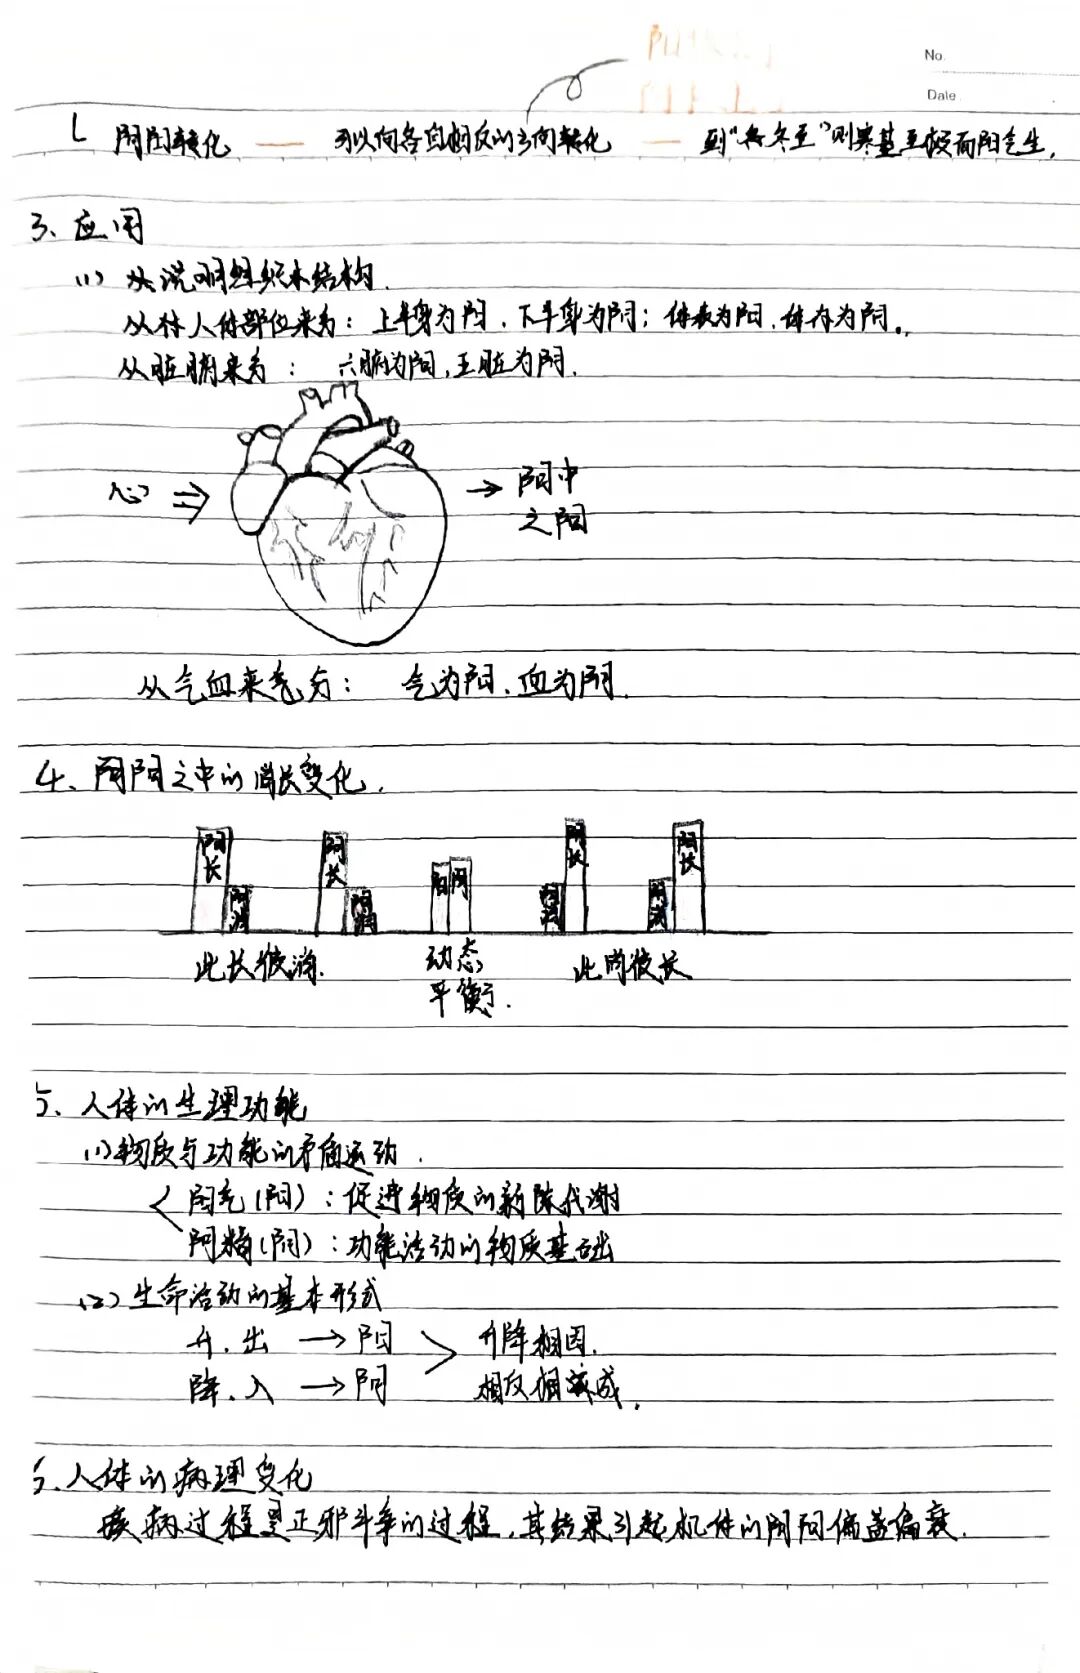 No.
Date
阴阳转化 — 可以向各自相反的方向转化 — 到“冬至”则寒盛至极而阳气生,
3、应用
(1) 说明组织结构.
从人体部位来分: 上半身为阳, 下半身为阴; 体表为阳, 体内为阴.
从脏腑来分: 六腑为阳, 五脏为阴.
心 ⇒ → 阳中
之阳
从气血来分: 气为阳, 血为阴.
4、阴阳之中的消长变化.
阳长 阴消 阴长 阳消 阳 阴 阳消 阴长 阴消 阳长
此长彼消. 动态 此消彼长
平衡.
5、人体的生理功能
(1) 物质与功能的矛盾运动.
阳气(阳): 促进物质的新陈代谢
阴精(阴): 功能活动的物质基础
(2) 生命活动的基本形式
升、出 → 阳 > 升降相因.
降、入 → 阴 相反相成.
6.人体的病理变化
疾病过程是正邪斗争的过程, 其结果引起机体的阴阳偏盛偏衰.